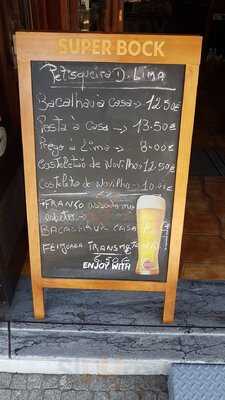 SUPER BOCK
Petisqueira D. Lima
Bacalhau à Casa → 12.50€
Posta à Casa → 13.50€
Prego à Lima → 8.00€
Costeletão de Novilho → 12.50
Costeleta de Novilho → 10.00€
FRANGO assado no
BACALHAU À CASA
FEIJOADA TRANSMONTANA
6,50€
ENJOY WITH